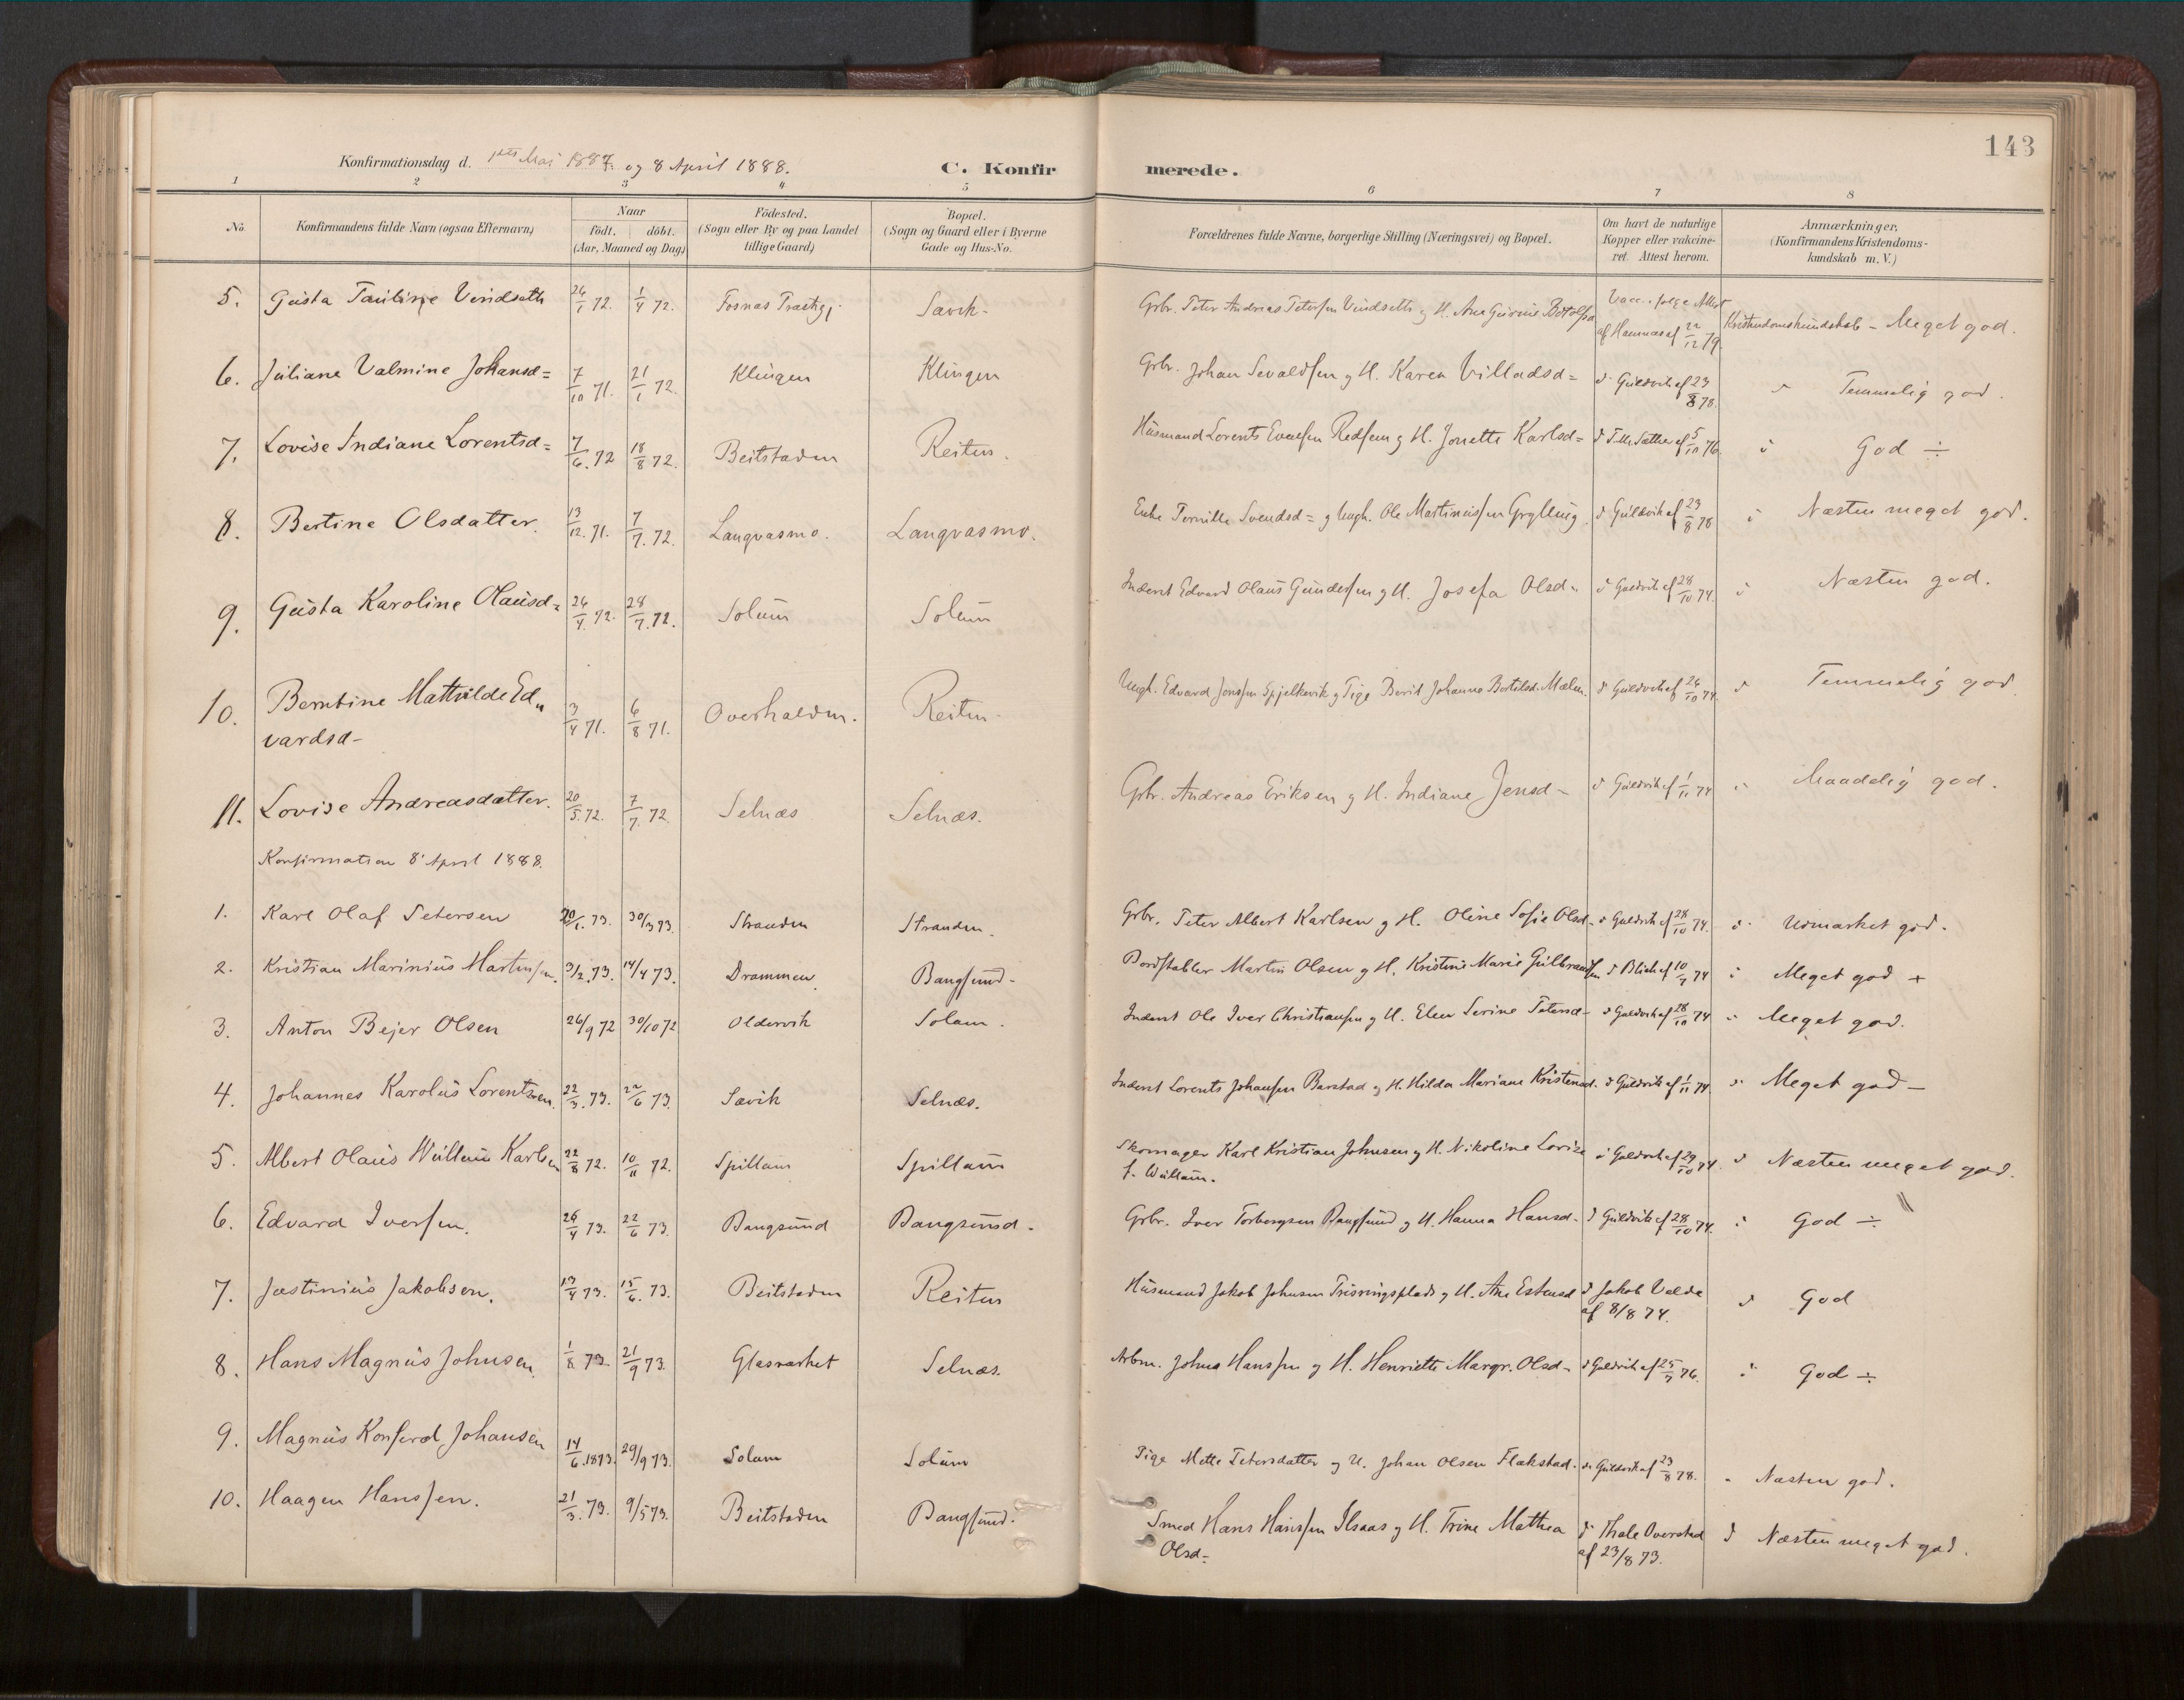 143
Konfirmationsdag d. 1ste Mai 1887. og 8 April 1888. C. Konfirmerede.
1 2 3 4 5 6 7 8
No. Konfirmandens fulde Navn (ogsaa Efternavn) Naar födt. döbt. (Aar, Maaned og Dag) Födested. (Sogn eller By og paa Landet tillige Gaard) Bopæl. (Sogn og Gaard eller i Byerne Gade og Hus-No. Forældrenes fulde Navne, borgerlige Stilling (Næringsvei) og Bopæl. Om havt de naturlige Kopper eller vakcineret. Attest herom. Anmærkninger, (Konfirmandens Kristendomskundskab m. V.)
5. Gusta Pauline Vindseth 1/4 72. Fosnas Savik- Grbr. Peter Andreas Petersen Vindseth og H. Vacc. ifølge Attest af 22/12 79. Kristendomskundskab - Meget god.
6. Juliane Valmine Johansd= 7/10 71. 21/1 72. Klingen Klingen Grbr. Johan Sevaldsen og H. Karen Villadsd= d Guldvik af 23/8 78. d Temmelig god.
7. Lovise Indiane Lorentsd= 7/6. 72 18/8 72. Beitstaden Reiten. Husmand Lorents Evensen og H. Jonette Karlsd= d Sæther af 5/10 76. d God ÷
8. Bertine Olsdatter. 13/12. 71. 7/7. 72. Langvasmo. Langvasmo. Enke Pernille Svendsd= og Ungk. Ole Martinussen Grylling. d Guldvik af 23/8 78 d Næsten meget god.
9. Gusta Karoline Olausd= 26/4. 72. 28/7. 72. Solum Solum Inderst Edvard Olaus Gundersen og H. Josefa Olsd= d Guldvik af 28/10 74. d Næsten god.
10. Berntine Mathilde Ed„ 3/4 71. 6/8 71. Overhalden. Reiten- Ungk. Edvard Jonssen Spjelkevik og Pige Berit Johanna Bertilsd. Mælen. d Guldvik af 26/10 74. d Temmelig god.
vardsd-
11. Lovise Andreasdatter. 20/5. 72. 7/7. 72. Selnæs Selnæs. Grbr. Andreas Eriksen og H. Indiane Jensd- d Guldvik af 1/11 74 d Maadelig god.
Konfirmation 8' April 1888.
1. Karl Olaf Petersen 20/1. 73. 30/3 73. Stranden Stranden. Grbr. Peter Albert Karlsen og H. Oline Sofie Olsd- d Guldvik af 28/10 74. d Udmærket god.
2. Kristian Marinius Martinsen. 3/2. 73. 14/4 73. Drammen. Bangsund- Bordstabler Martin Olsen og H. Kristine Marie Gulbrandsen d Blich af 10/7 74 d Meget god +
3. Anton Bejer Olsen 26/9 72 30/10 72 Oldervik Solum. Inderst Ole Iver Christiansen og H. Elen Serine Petersd- d Guldvik af 28/10 74 d Meget god.
4. Johannes Karolus Lorentsen. 22/3. 73. 22/6 73. Savik Selnæs. Inderst Lorents Johansen Barstad og H. Hilda Mariane Kristensd. d Guldvik af 1/11 74. d Meget god-
5. Albert Olaus Wullum Karlsen 22/8 72. 10/11 72. Spillum Spillum Skomager Karl Kristian Johnsen og H. Nikoline Lovise d Guldvik af 29/10 74. d Næsten meget god.
f. Wullum.
6. Edvard Iversen. 26/4 73. 22/6 73. Bangsund Bangsund. Grbr. Iver Torbergsen Bangsund og H. Hanna Hansd. d Guldvik af 28/10 74. d God ÷
7. Justinius Jakobsen. 13/4 73. 15/6. 73. Beitstaden Reiten Husmand Jakob Johnsen og H. Ane Estensd d Jakob Velde d God
af 8/8 74.
8. Hans Magnus Johnsen. 1/8 73. 21/9 73. Glasværket Selnæs. Arbm. Johns Hanssen og H. Henriette Margr. Olsd- d Guldvik af 25/7 76. d God ÷
9. Magnus Konfird Johansen 14/6. 1873. 29/9 73. Solum Solum Pige Mette Petersdatter og U. Johan Olsen Flakstad. d Guldvik af 23/8 78. " Næsten god.
10. Haagen Hanssen. 21/3. 73. 9/5 73. Beitstaden Bangsund. Smed Hans Hanssen Ilsaas og H. Trine Mathea d Thale Overstad d Næsten meget god.
Olsd- af 23/8 73.